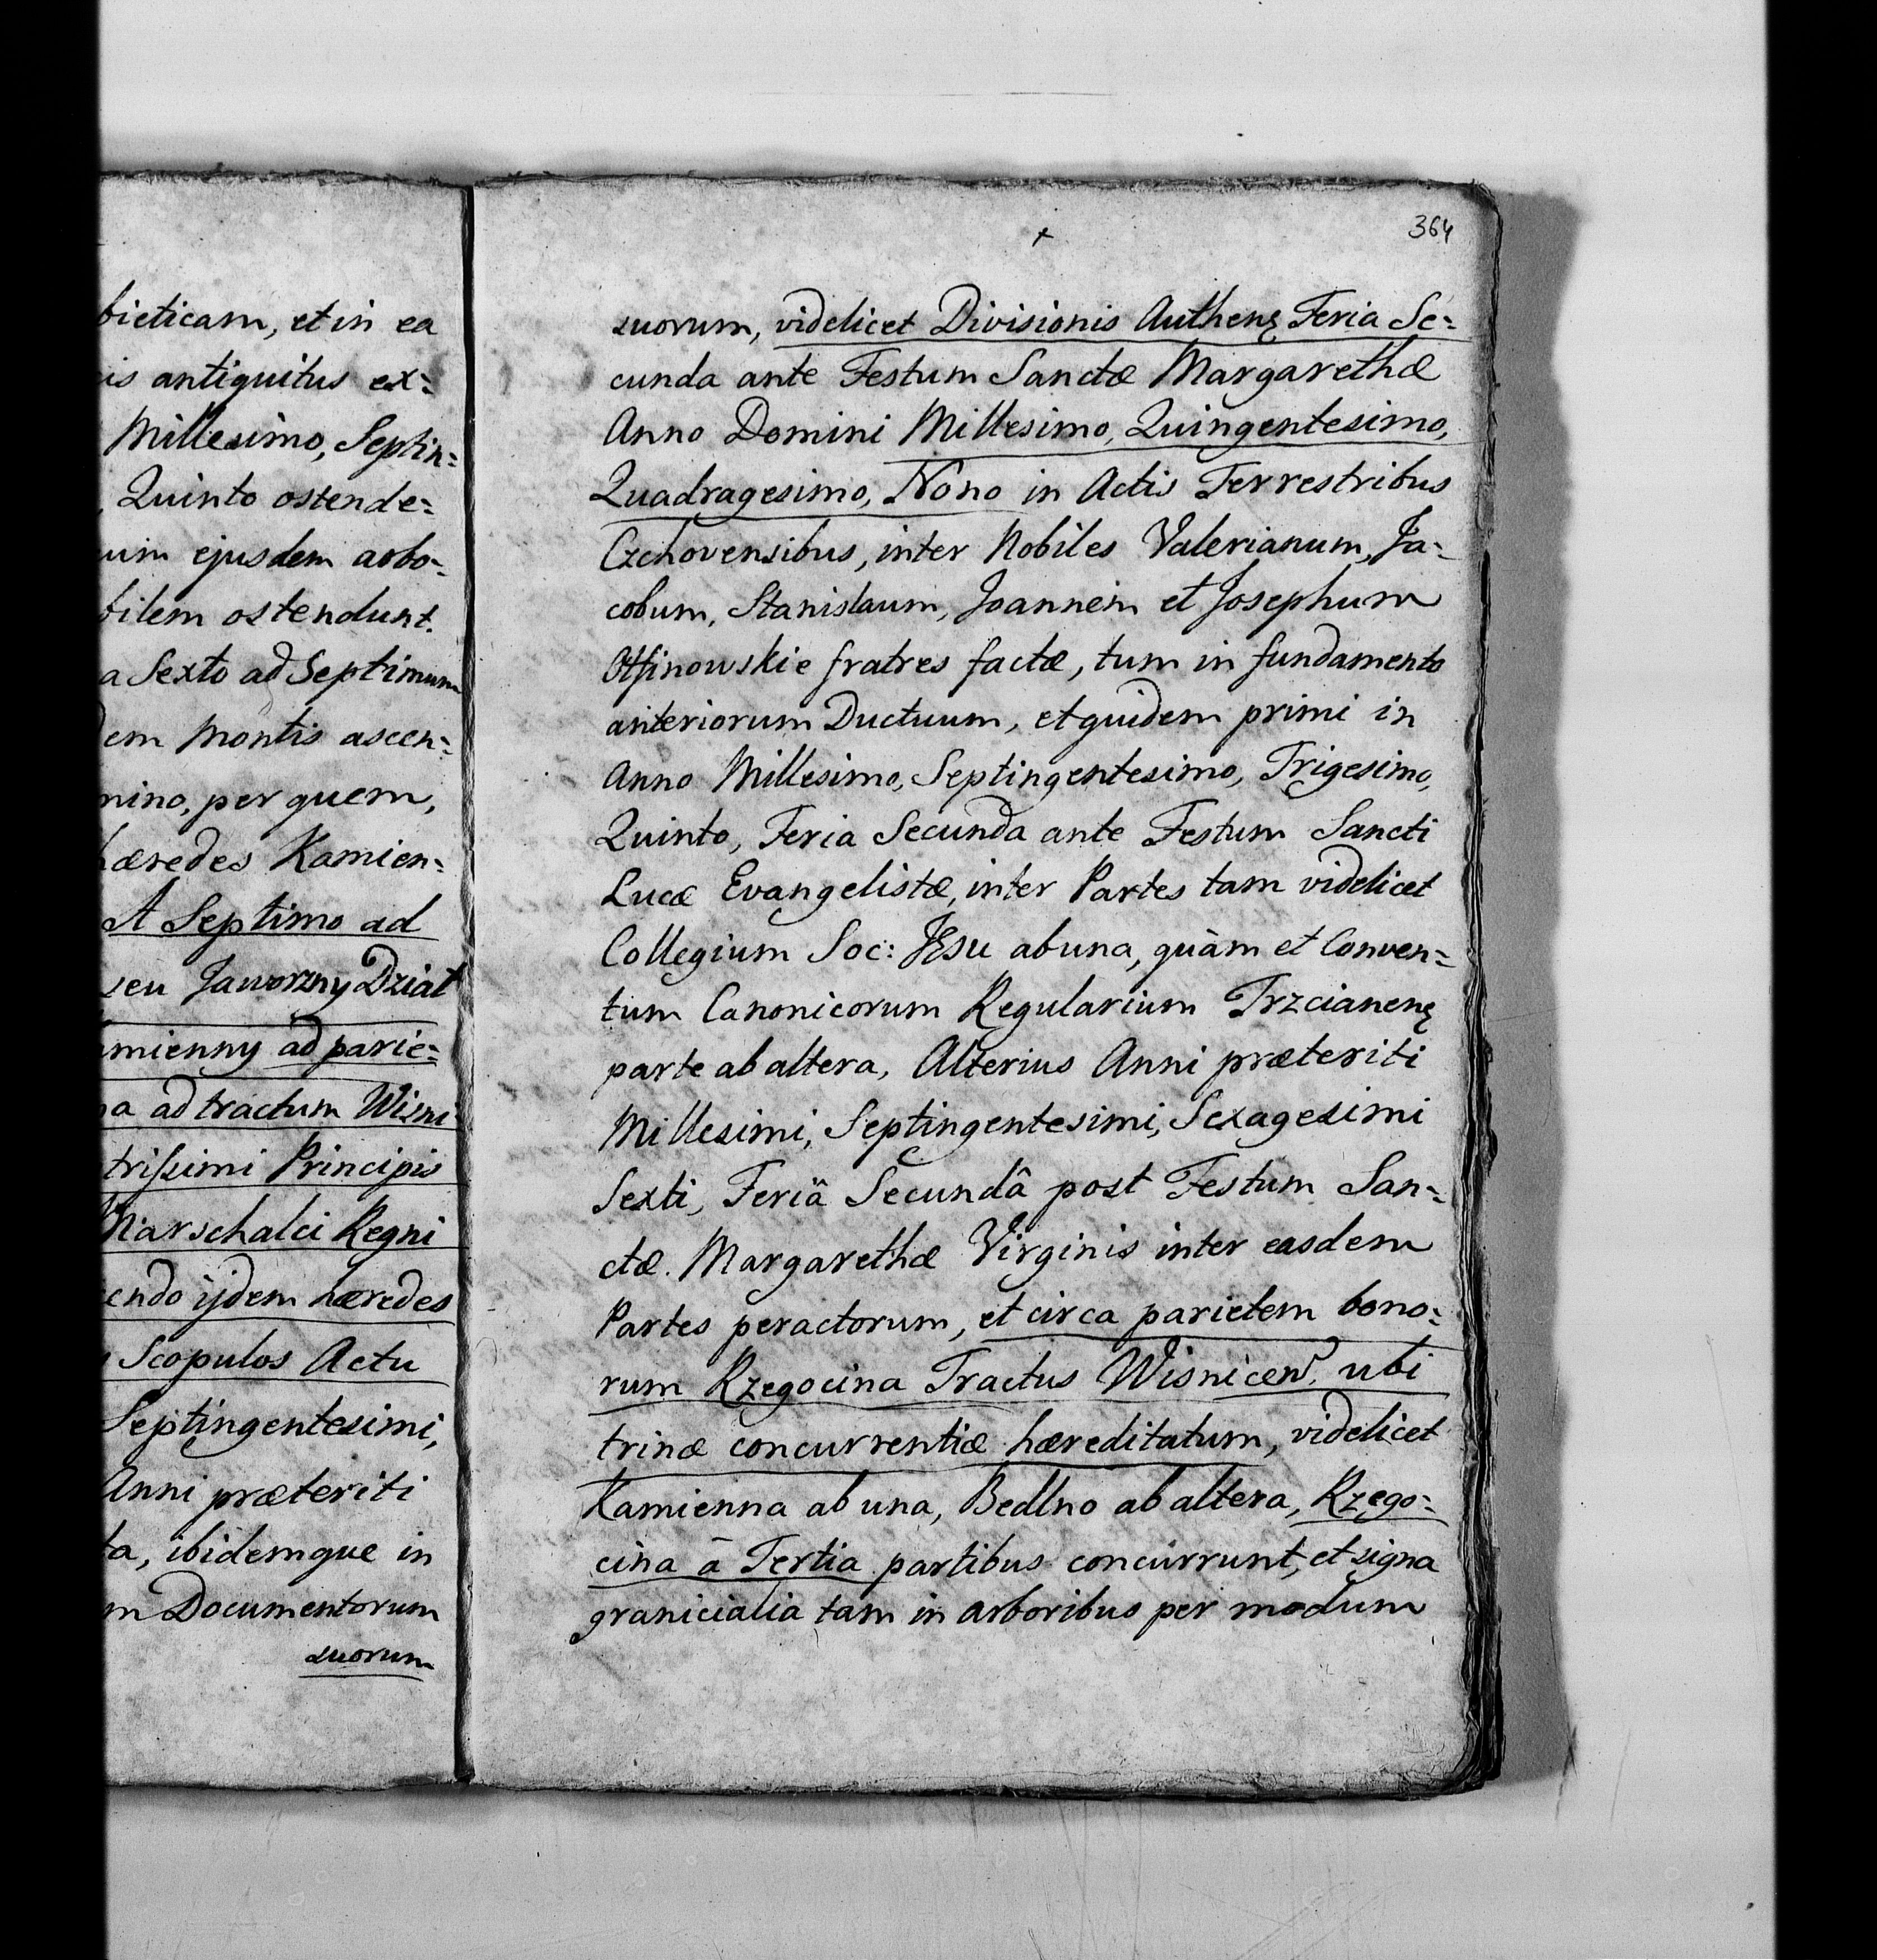 bieticam, et in ea
is antiquitus ex=
Millesimo, Septin=
, Quinto ostende=
um ejusdem arbo=
bilem ostendunt.
a Sexto ad Septimum
dem Montis ascen=
mino, per quem,
hæredes Kamien=
A Septimo ad
seu Jaworzny Dziat
mienny ad parie=
a ad tractum Wisni
trissimi Principis
Marschalci Regni
endo ijdem hæredes
Scopulos Actu
Septingentesimi,
Anni præteriti
ta, ibidemque in
m Documentorum
suorum
364
suorum, videlicet Divisionis Authenę Feria Se=
cunda ante Festum Sanctæ Margarethæ
Anno Domini Millesimo, Quingentesimo,
Quadragesimo, Nono in Actis Terrestribus
Czchovensibus, inter Nobiles Valerianum, Ja=
cobum, Stanislaum, Joannem et Josephum
Otfinowskie fratres factæ, tum in fundamento
anteriorum Ductuum, et quidem primi in
Anno Millesimo, Septingentesimo, Trigesimo,
Quinto, Feria Secunda ante Festum Sancti
Lucæ Evangelistæ, inter Partes tam videlicet
Collegium Soc: JEsu ab una, quàm et Conven=
tum Canonicorum Regularium Trzcianenę
parte ab altera, Alterius Anni præteriti
Millesimi, Septingentesimi, Sexagesimi
Sexti, Feriâ Secundâ post Festum San=
ctæ. Margarethæ Virginis inter easdem
Partes peractorum, et circa parietem bono=
rum Rzegocina Tractus Wisnicen. ubi
trinæ concurrentiæ hæreditatum, videlicet
Kamienna ab una, Bedlno ab altera, Rzego=
cina â Tertia partibus concurrunt, et signa
granicialia tam in arboribus per modum